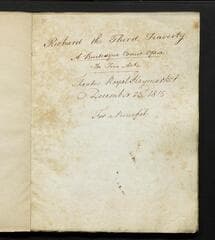 Richard the Third Travesty
A Burlesque Comic Opera
In Two Acts
Theatre Royal Haymarket
December 1815